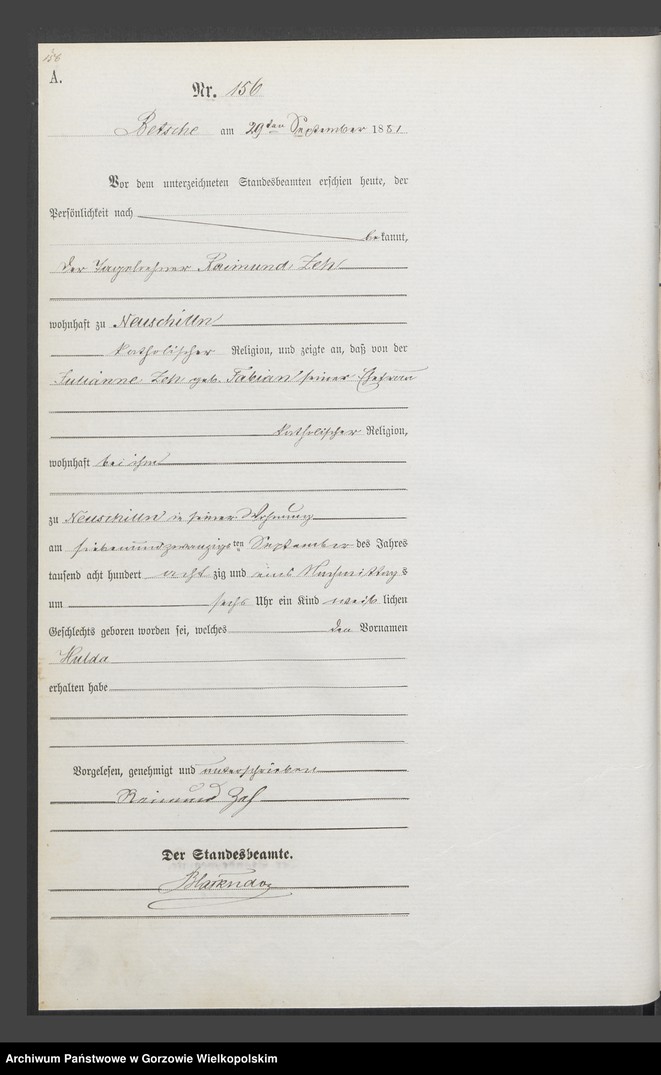 156
A.
Nr. 156
Betsche am 29ten September 1881
Vor dem unterzeichneten Standesbeamten erschien heute, der
Persönlichkeit nach
bekannt,
der Tagelöhner Raimund Zeh
wohnhaft zu Neuschilln
katholischer Religion, und zeigte an, daß von der
Julianne Zeh geb. Fabian seiner Ehefrau
katholischer Religion,
wohnhaft bei ihm
zu Neuschilln in seiner Wohnung
am siebenundzwanzigsten September des Jahres
tausend acht hundert achtzig und eins Nachmittags
um sechs Uhr ein Kind weiblichen
Geschlechts geboren worden sei, welches den Vornamen
Hulda
erhalten habe
Vorgelesen, genehmigt und unterschrieben
Raimund
Der Standesbeamte.
Archiwum Państwowe w Gorzowie Wielkopolskim